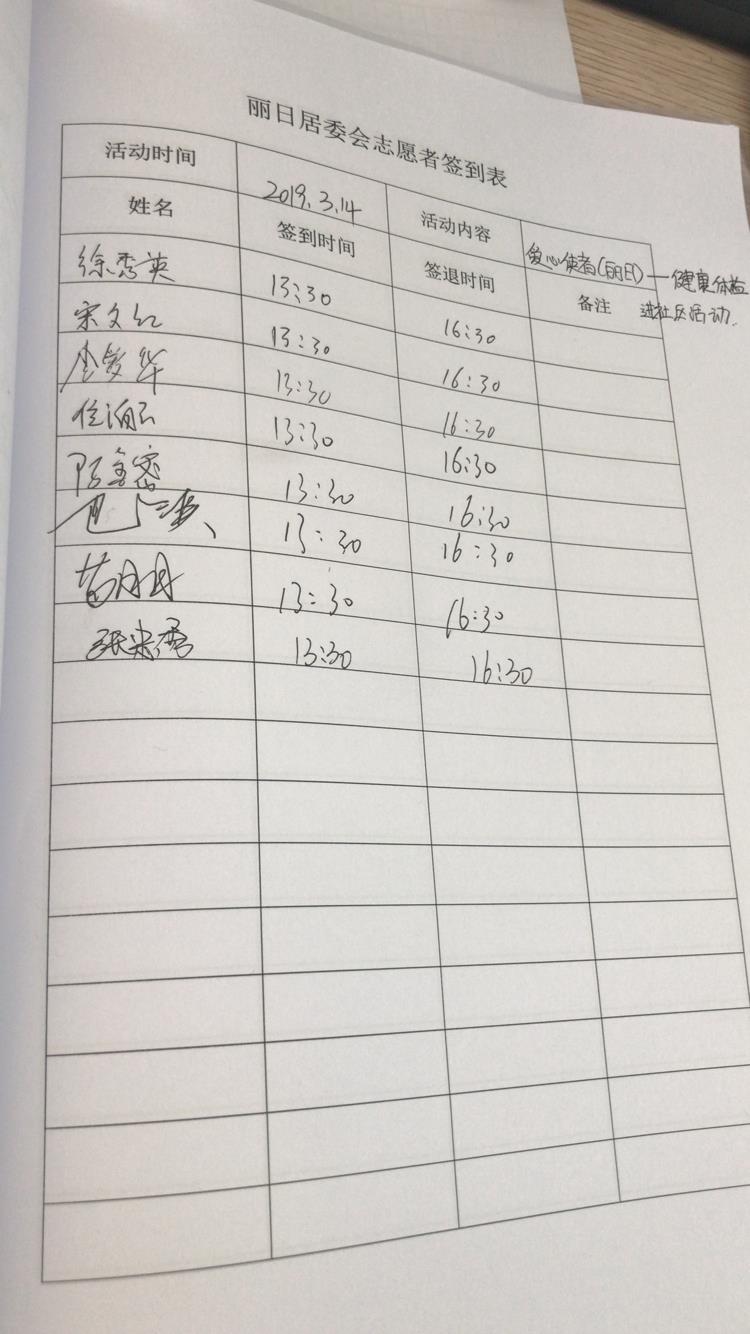 丽日居委会志愿者签到表
活动时间 2019.3.14 活动内容 爱心使者(丽日)—健康体验
进社区活动.
姓名 签到时间 签退时间 备注
徐秀英 13:30 16:30
宋文红 13:30 16:30
13:30 16:30
13:30 16:30
13:30 16:30
13:30 16:30
苗丹丹 13:30 16:30
张米秀 13:30 16:30